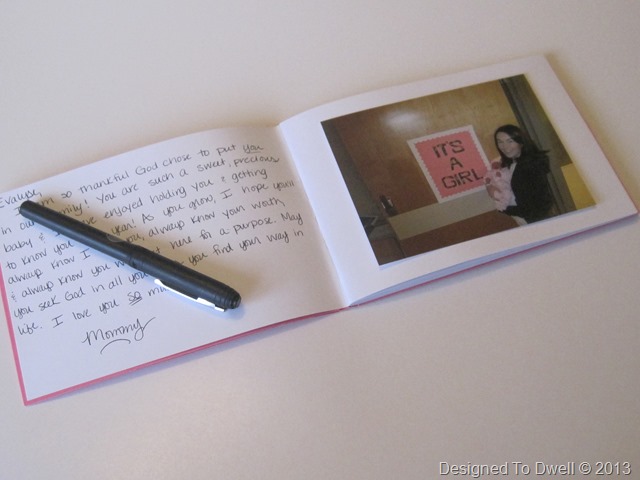 Evalyse,
so thankful God chose to put you
in You are such a sweet, precious
baby & enjoyed holding you & getting
to know you As you grow, I hope you'll
always know I you, always know your worth
& always know you here for a purpose. May
you seek God in all you find your way in
life. I love you so
Mommy
IT'S
A
GIRL
Designed To Dwell © 2013